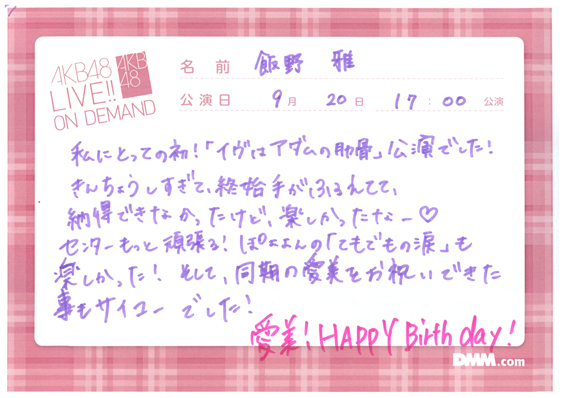 AKB48
LIVE!!
ON DEMAND
AKB
48
名前 飯野 雅
公演日 9月 20日 17:00 公演
私にとっての初!「イヴはアダムの肋骨」公演でした!
きんちょうしすぎて、終始手がふるえてて、
納得できなかったけど、楽しかったなー♡
センターもっと頑張る!ぱぉよよんの「てもでもの涙」も
楽しかった!そして、同期の愛美をお祝いできた
事もサイコーでした!
愛美!HAPPY Birthday!
DMM.com